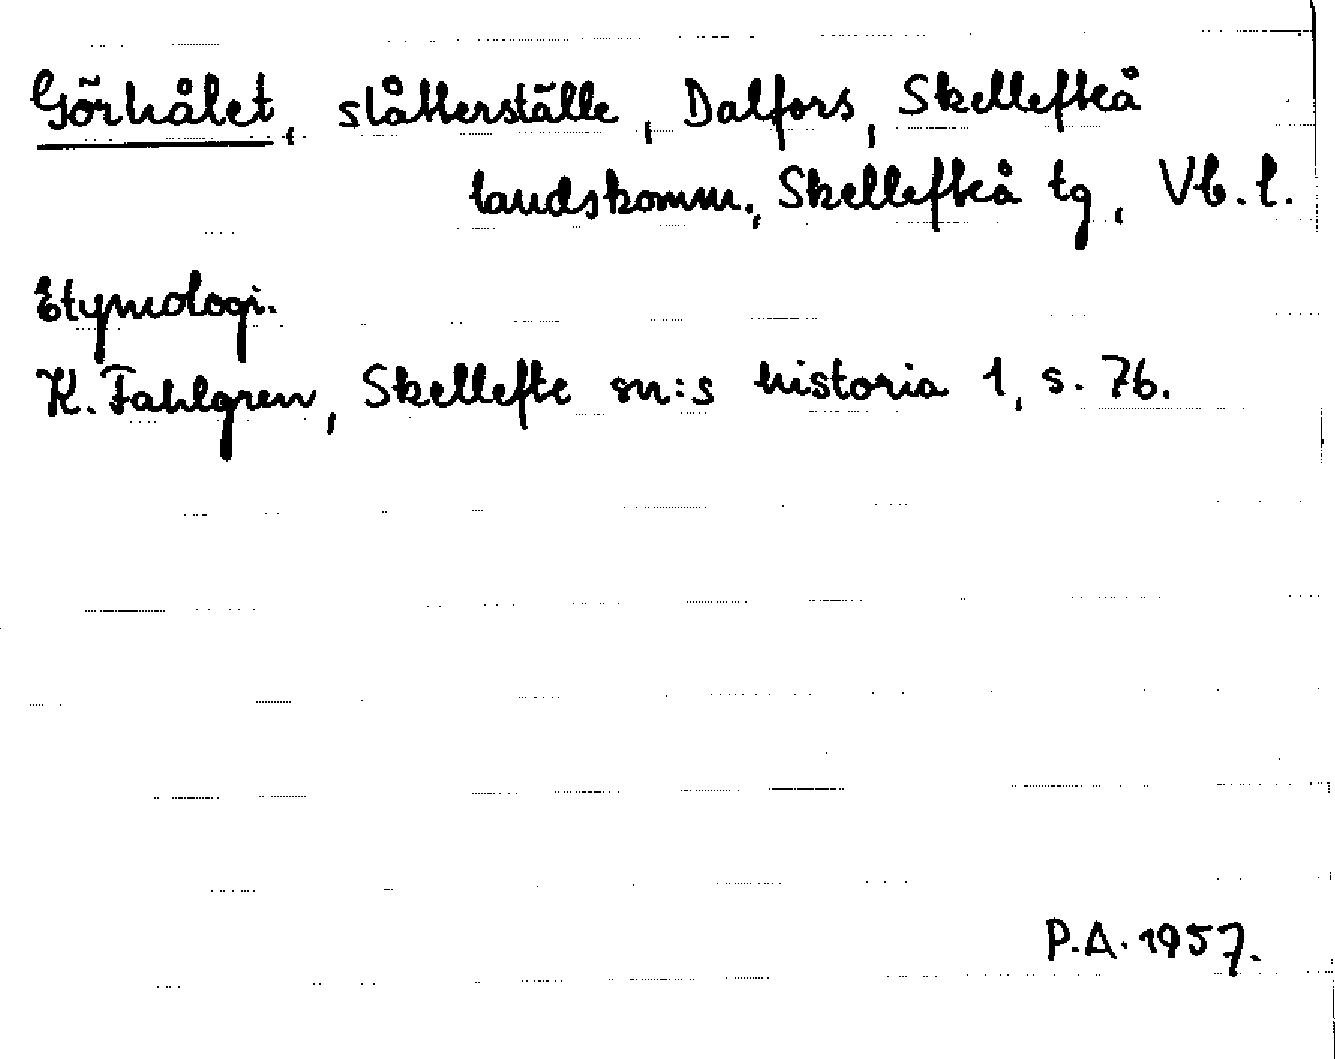 Görhålet, slåtterställe, Dalfors, Skellefteå
landskomm., Skellefteå tg, Vb. l.
Etymologi.
K. Fahlgren, Skellefte sn:s historia 1, s. 76.
P.A. 1957.